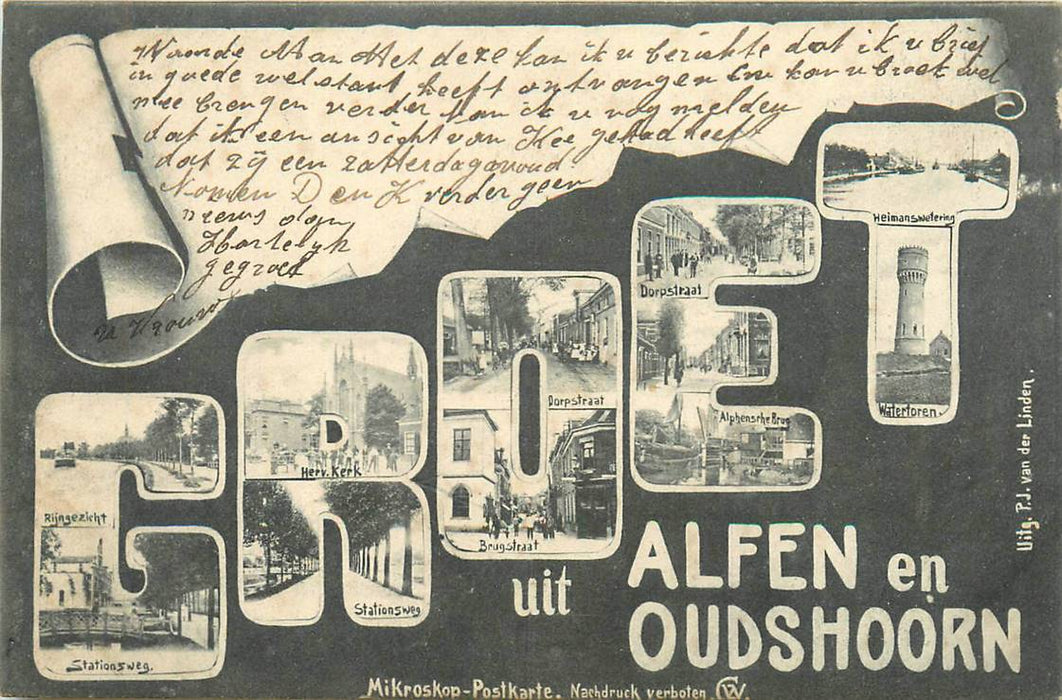 Waarde Man Met deze kan ik u berichte dat ik u brief
in goede welstant heeft ontvangen en kan u broek wel
mee brengen verder kan ik u nog melden
dat ik een ansicht van Kee gehad heeft
dat zij een zatterdagavond
Komen D en K verder geen
nieuws dan
Hartelijk
gegroet
u Vrouw
GROET
Rijngezicht
Stationsweg.
Herv. Kerk
Stationsweg
Dorpstraat
Brugstraat
Dorpstraat
Alphensche Brug
Heimanswetering
Watertoren.
uit
ALFEN en
OUDSHOORN
Uitg. P.J. van der Linden.
Mikroskop-Postkarte. Nachdruck verboten.